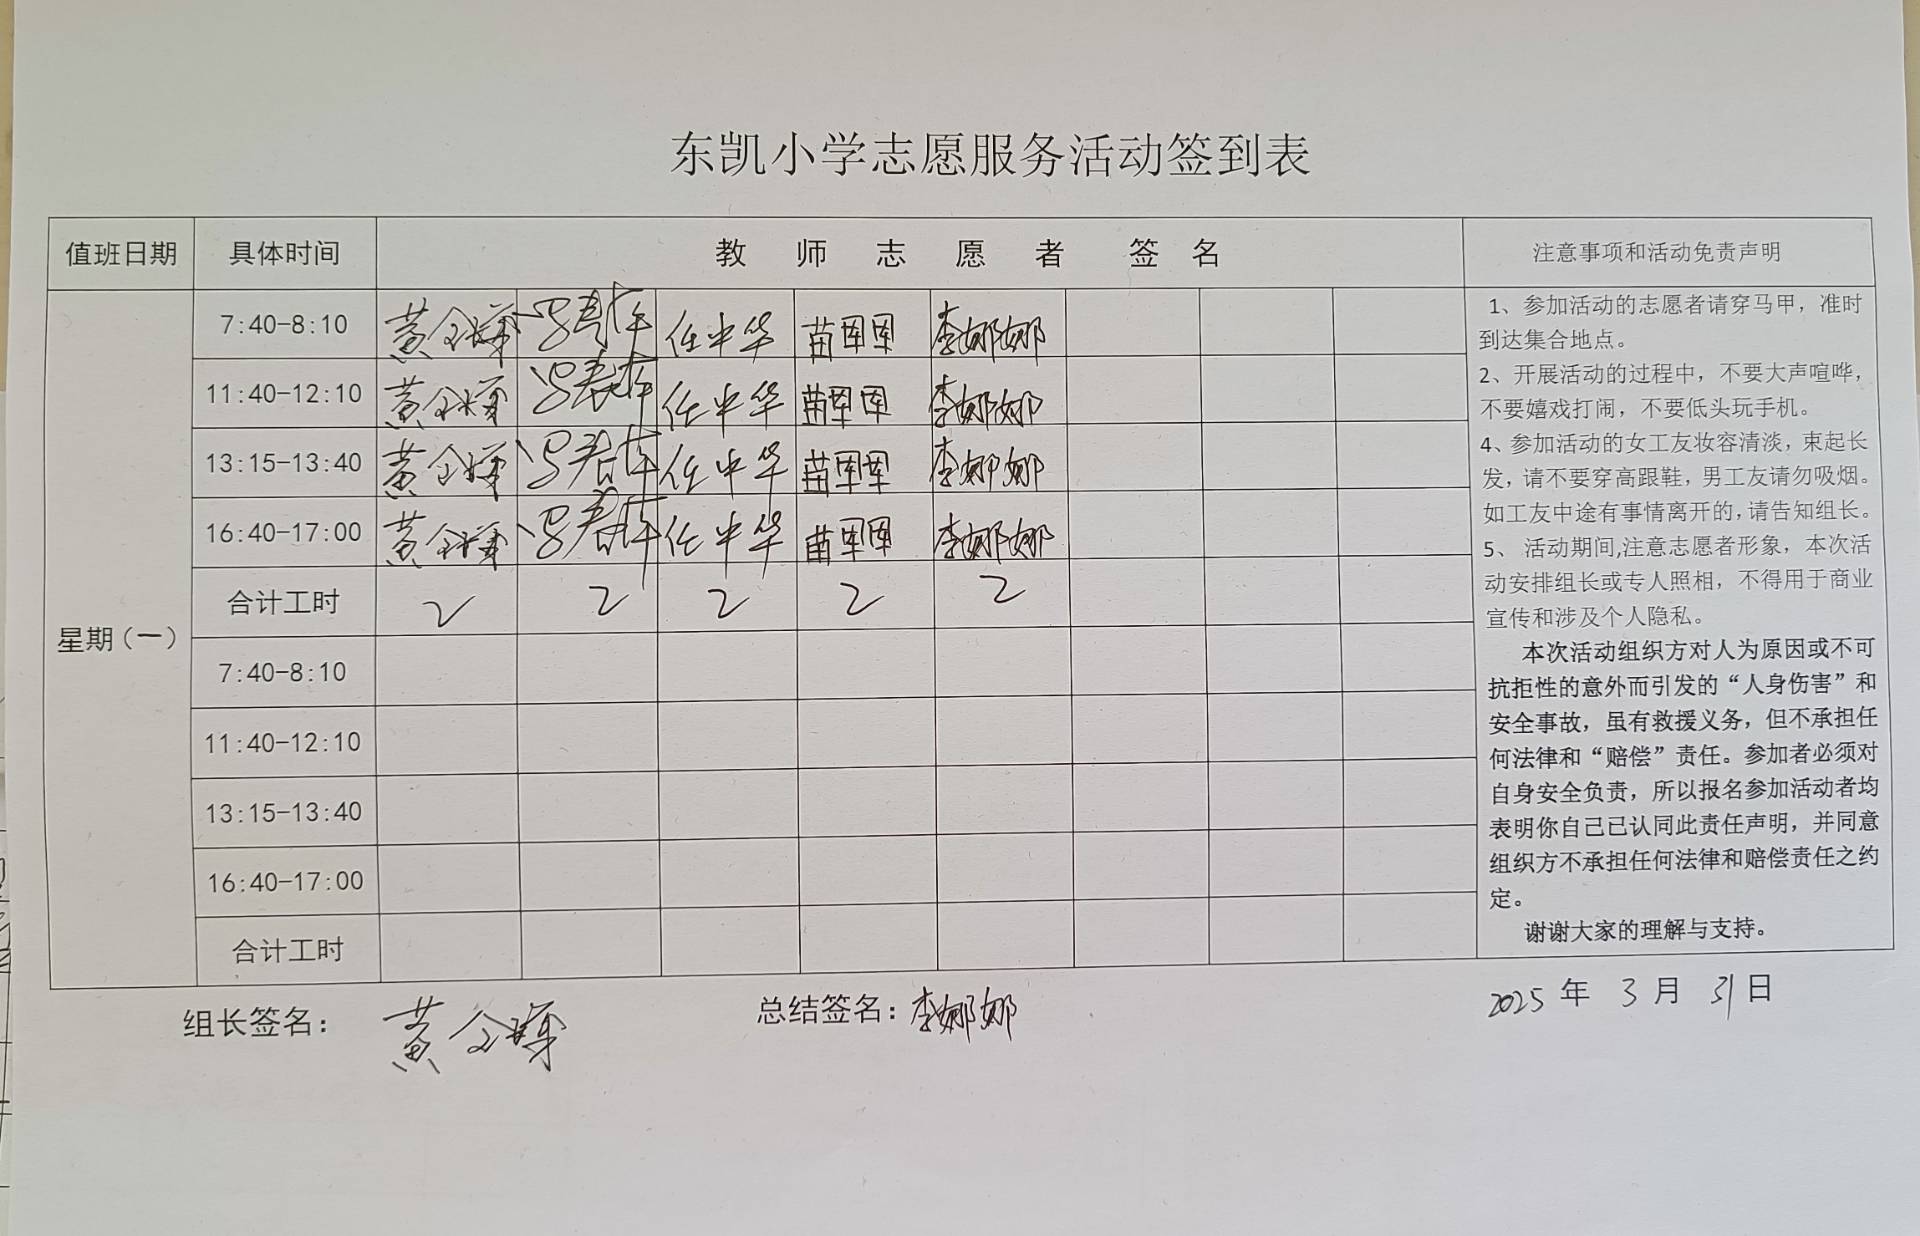 东凯小学志愿服务活动签到表
值班日期 具体时间 教师志愿者 签名 注意事项和活动免责声明
星期(一)
7:40-8:10 黄 任中华 苗军军 李娜娜
11:40-12:10 黄 任中华 苗军军 李娜娜
13:15-13:40 黄 任中华 苗军军 李娜娜
16:40-17:00 黄 任中华 苗军军 李娜娜
合计工时 2 2 2 2 2
7:40-8:10
11:40-12:10
13:15-13:40
16:40-17:00
合计工时
1、参加活动的志愿者请穿马甲，准时
到达集合地点。
2、开展活动的过程中，不要大声喧哗，
不要嬉戏打闹，不要低头玩手机。
4、参加活动的女工友妆容清淡，束起长
发，请不要穿高跟鞋，男工友请勿吸烟。
如工友中途有事情离开的，请告知组长。
5、 活动期间,注意志愿者形象，本次活
动安排组长或专人照相，不得用于商业
宣传和涉及个人隐私。
本次活动组织方对人为原因或不可
抗拒性的意外而引发的“人身伤害”和
安全事故，虽有救援义务，但不承担任
何法律和“赔偿”责任。参加者必须对
自身安全负责，所以报名参加活动者均
表明你自己已认同此责任声明，并同意
组织方不承担任何法律和赔偿责任之约
定。
谢谢大家的理解与支持。
组长签名： 黄 总结签名：李娜娜 2025 年 3 月 31 日